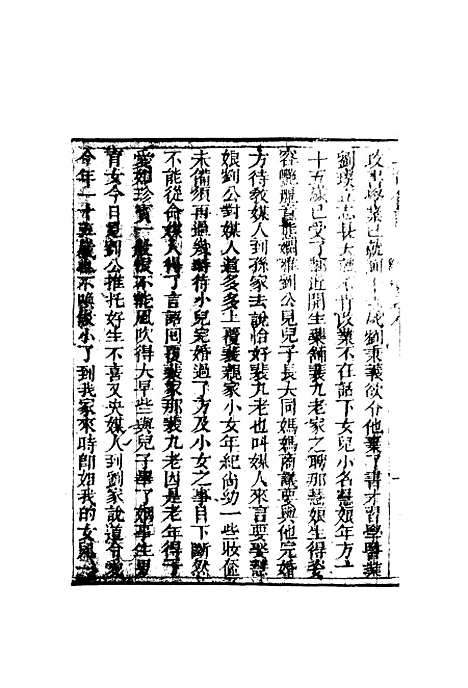 攻書學業已就到十六歲劉秉義欲令他棄了書才習學醫業
劉璞立志長大不肯改業不在話下女兒小名慧娘年方一
十五歲已受了鄰近開生藥舖裴九老家之聘那慧娘生得姿
容艷麗意態嫻雅劉公見兒子長大同媽媽商議要與他完婚
方待教媒人到孫家去說恰好裴九老也叫媒人來言要娶慧
娘劉公對媒人道多多上覆裴親家小女年紀尚幼一些妝奩
未備須再過幾時待小兒完婚過了方及小女之事目下斷然
不能從命媒人得了言語回覆裴家那裴九老因是老年得子
愛如珍寶一般恨不能風吹得大早些與兒子畢了姻事生男
育女今日見劉公推托好生不喜又央媒人到劉家說道令愛
今年一十五歲也不喚做小了到我家來時即如我的女兒一